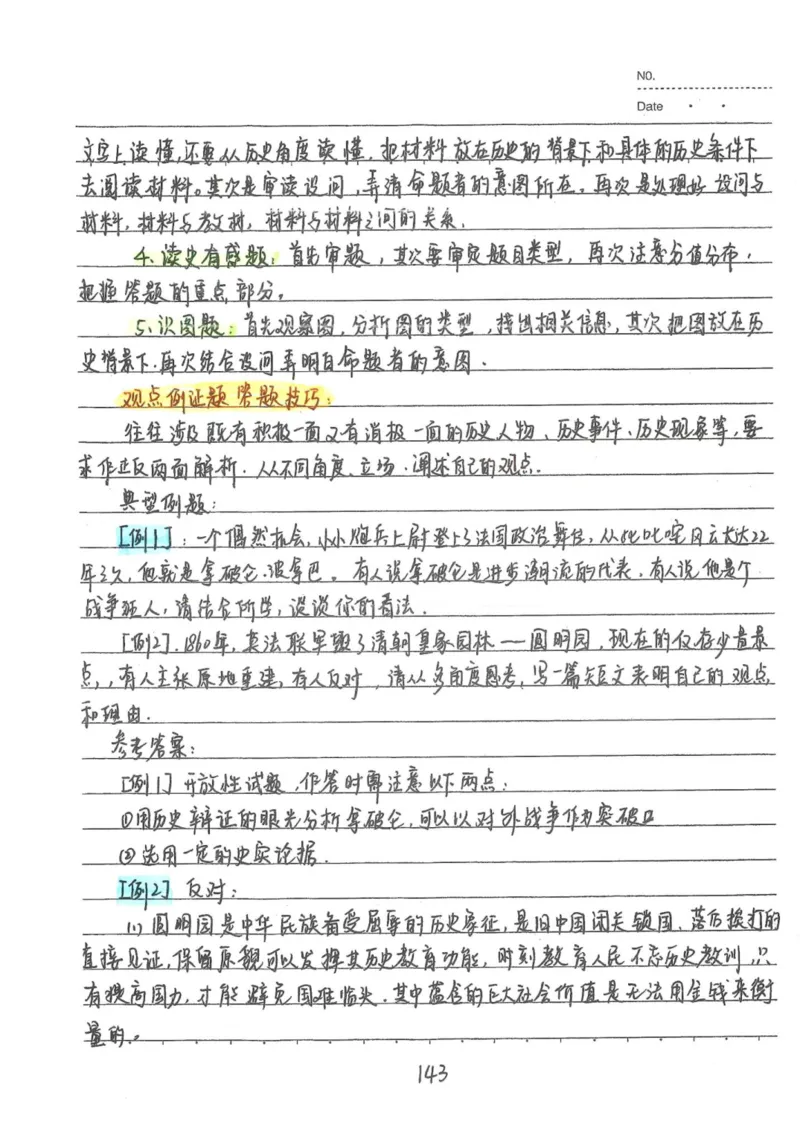 NO.
Date
文字上读懂,还要从历史角度读懂,把材料放在历史的背景下和具体的历史条件下
去阅读材料。其次是审读设问,弄清命题者的意图所在。再次是处理好设问与
材料,材料与教材,材料与材料之间的关系.
4、读史有感题:首先审题,其次要审定题目类型,再次注意分值分布,
把握答题的重点部分。
5、识图题:首先观察图,分析图的类型,择出相关信息,其次把图放在历
史背景下.再次结合设问弄明白命题者的意图.
观点例证题答题技巧:
往往涉及既有积极一面又有消极一面的历史人物、历史事件、历史现象等,要
求作正反两面解析.从不同角度、立场.阐述自己的观点.
典型例题:
[例1]:一个偶然机会,小小炮兵上尉登上了法国政治舞台,从此叱咤风云长达22
年之久,他就是拿破仑·波拿巴。有人说拿破仑是进步潮流的代表,有人说他是个
战争狂人,请结合所学,谈谈你的看法.
[例2].1860年,英法联军毁了清朝皇家园林——圆明园,现在的仅存少量景
点,,有人主张原地重建,有人反对,请从多角度思考,写一篇短文表明自己的观点
和理由.
参考答案:
[例1]开放性试题,作答时需注意以下两点:
①用历史辩证的眼光分析拿破仑,可以以对外战争作为突破口
②选用一定的史实论据.
[例2]反对:
(1)圆明园是中华民族备受屈辱的历史象征,是旧中国闭关锁国、落后挨打的
直接见证,保留原貌可以发挥其历史教育功能,时刻教育人民不忘历史教训,只
有提高国力,才能避免国难临头.其中蕴含的巨大社会价值是无法用金钱来衡
量的。
143